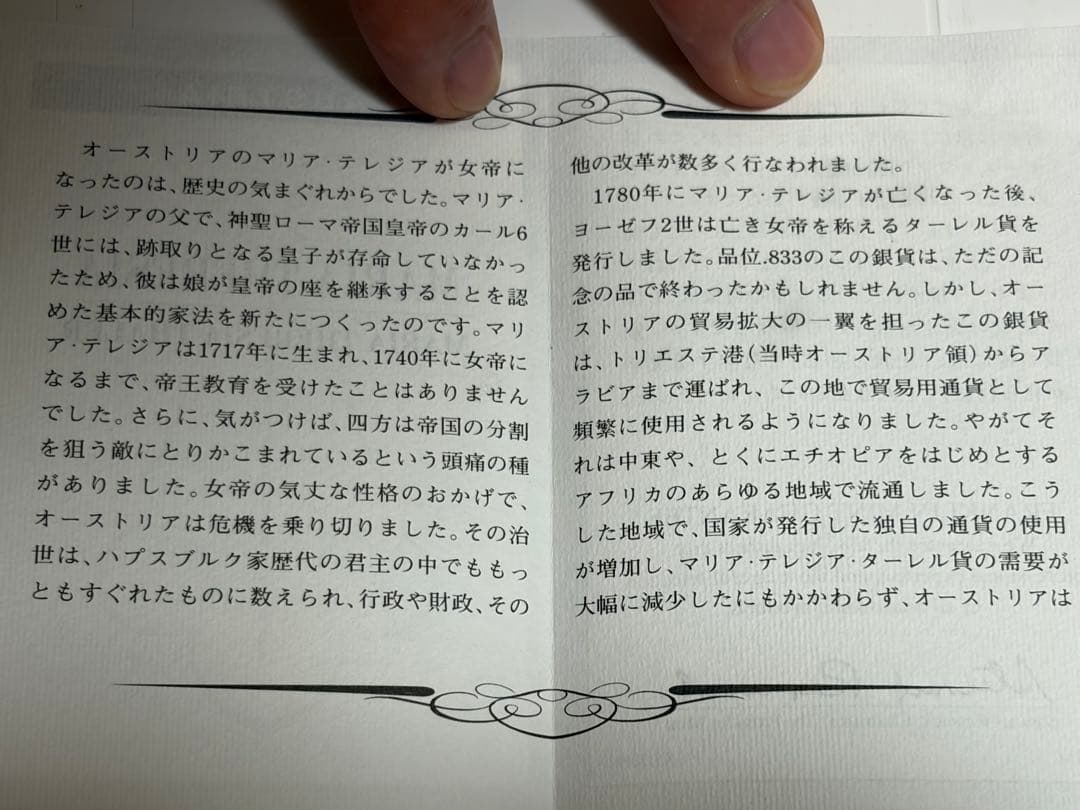 オーストリアのマリア・テレジアが女帝に
なったのは、歴史の気まぐれからでした。マリア・
テレジアの父で、神聖ローマ帝国皇帝のカール6
世には、跡取りとなる皇子が存命していなかっ
たため、彼は娘が皇帝の座を継承することを認
めた基本的家法を新たにつくったのです。マリ
ア・テレジアは1717年に生まれ、1740年に女帝に
なるまで、帝王教育を受けたことはありません
でした。さらに、気がつけば、四方は帝国の分割
を狙う敵にとりかこまれているという頭痛の種
がありました。女帝の気丈な性格のおかげで、
オーストリアは危機を乗り切りました。その治
世は、ハプスブルク家歴代の君主の中でももっ
ともすぐれたものに数えられ、行政や財政、その
他の改革が数多く行なわれました。
1780年にマリア・テレジアが亡くなった後、
ヨーゼフ2世は亡き女帝を称えるターレル貨を
発行しました。品位.833のこの銀貨は、ただの記
念の品で終わったかもしれません。しかし、オー
ストリアの貿易拡大の一翼を担ったこの銀貨
は、トリエステ港(当時オーストリア領)からア
ラビアまで運ばれ、この地で貿易用通貨として
頻繁に使用されるようになりました。やがてそ
れは中東や、とくにエチオピアをはじめとする
アフリカのあらゆる地域で流通しました。こう
した地域で、国家が発行した独自の通貨の使用
が増加し、マリア・テレジア・ターレル貨の需要が
大幅に減少したにもかかわらず、オーストリアは